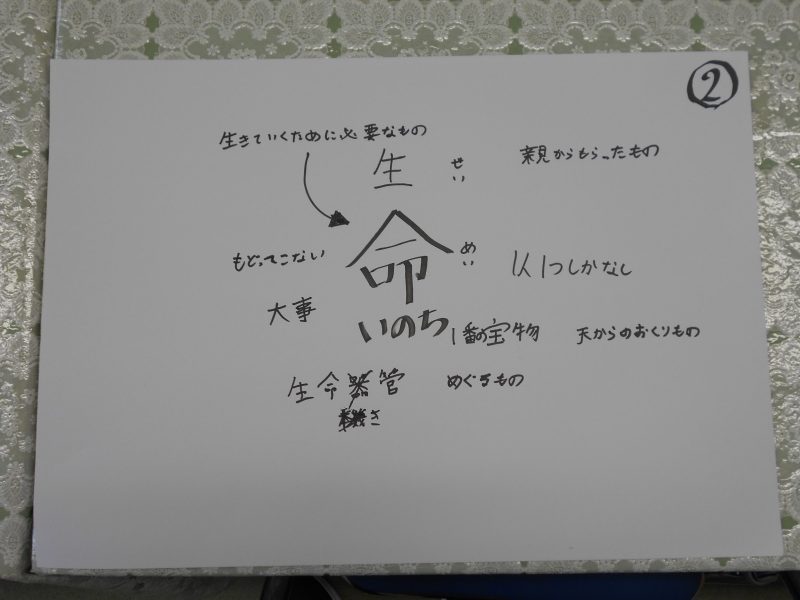 ②
生きていくために必要なもの
生 せい
親からもらったもの
命 めい
いのち
もどってこない
1人1つしかなし
大事
1番の宝物
天からのおくりもの
生命器管
めぐるもの